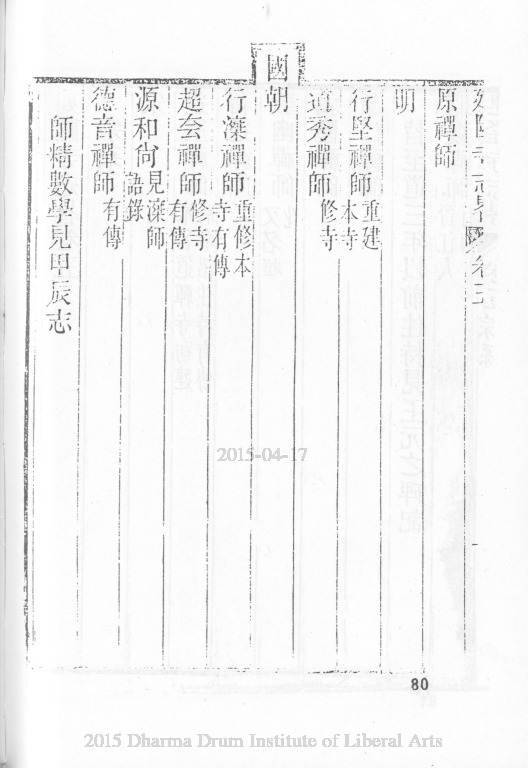 延陵寺志畧　卷三
原禪師
明
行堅禪師　重建本寺
道秀禪師　修寺
國朝
行藻禪師　重修本寺有傳
超岙禪師　修寺有傳
源和尚　見藻師語錄
德音禪師　有傳
師精數學見甲辰志
2015-04-17
80
2015 Dharma Drum Institute of Liberal Arts